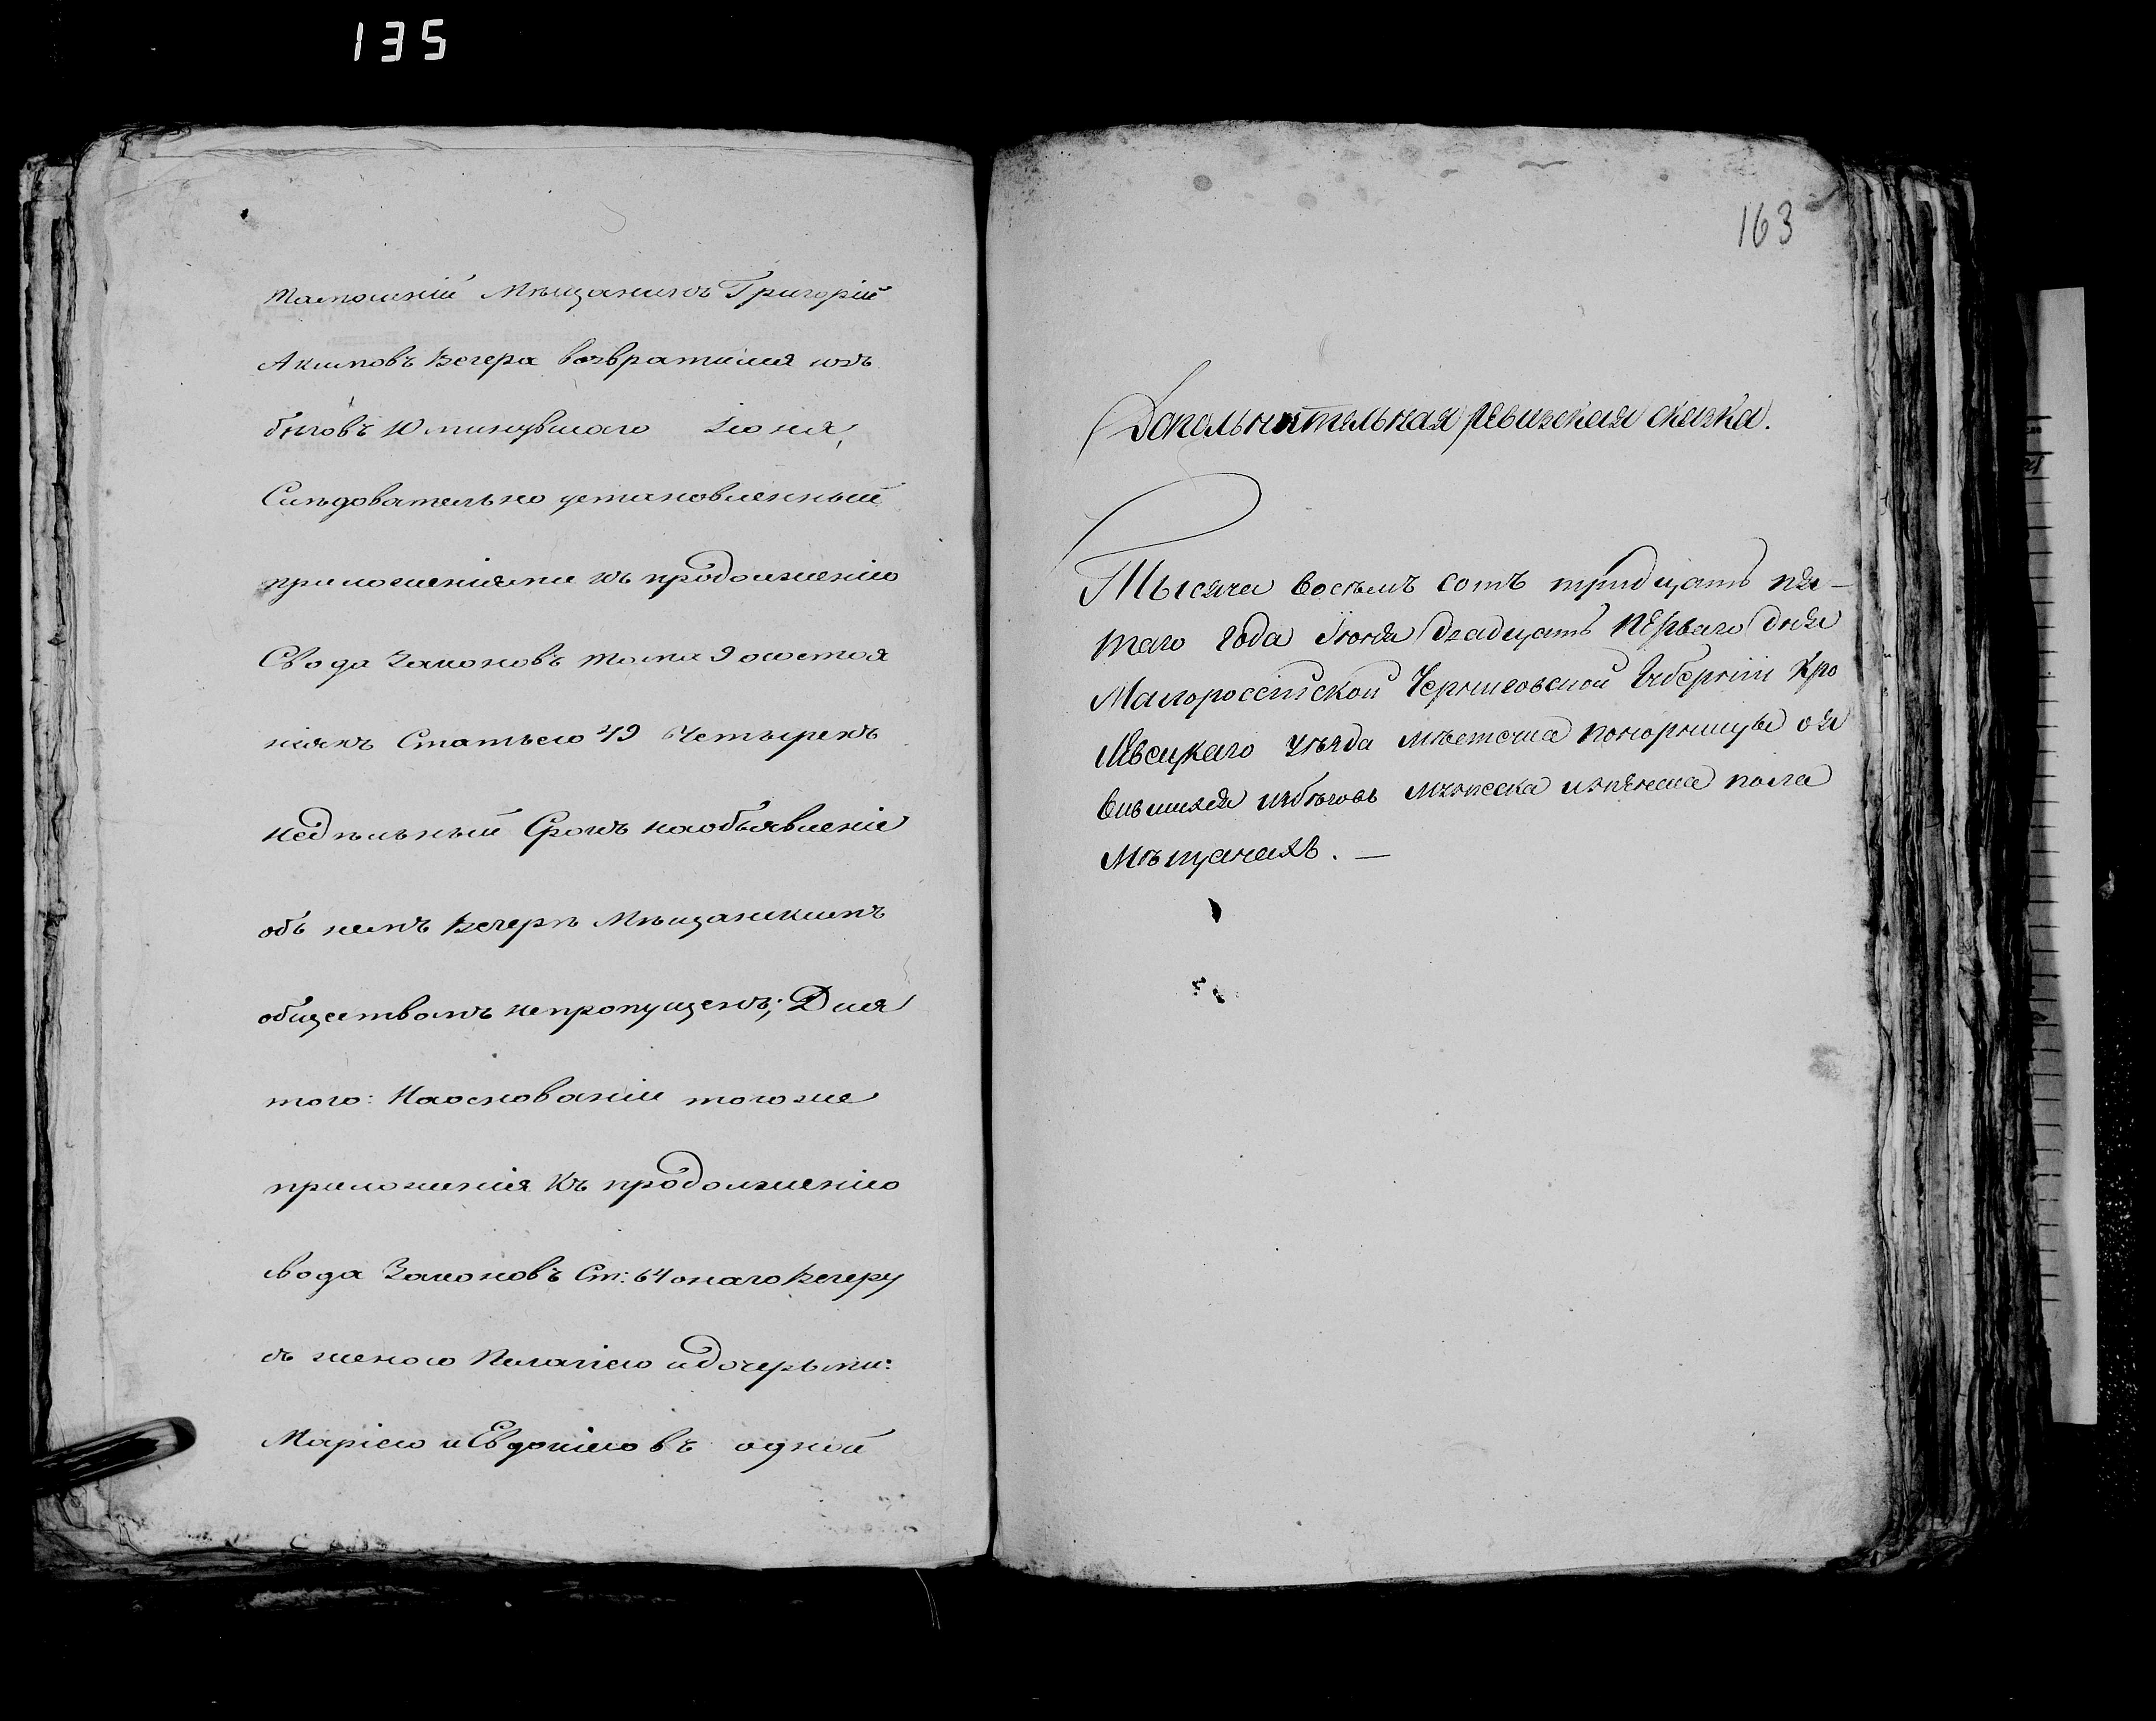 135
тамошній Мѣщанинъ Григорій
Акимовъ Вечера возвратился изъ
бѣговъ 10 минувшаго Іюня,
Слѣдовательно установленный
приложеніями къ продолженію
Свода Законовъ тома 9 о состоя
ніяхъ Статьею 49 Четырехъ
недѣльный Срокъ на объявленіе
объ немъ Вечерѣ Мѣщанскимъ
обществомъ не пропущенъ; Для
того: На основаніи того же
приложенія къ продолженію
свода Законовъ Ст: 64 онаго Вечеру
съ женою Пелагіею и дочерьми:
Маріею и Евдокіею въ одной
163
Дополнительная ревизская сказка.
Тысяча восемъ сотъ тридцать пя-
таго года Іюня двадцать перваго дня
Малороссійской Черниговской Губерніи Кро
левецкаго уѣзда мѣстечка Понорницы о я
вившихся изъ бѣговъ мужеска и женска пола
Мѣщанахъ. —